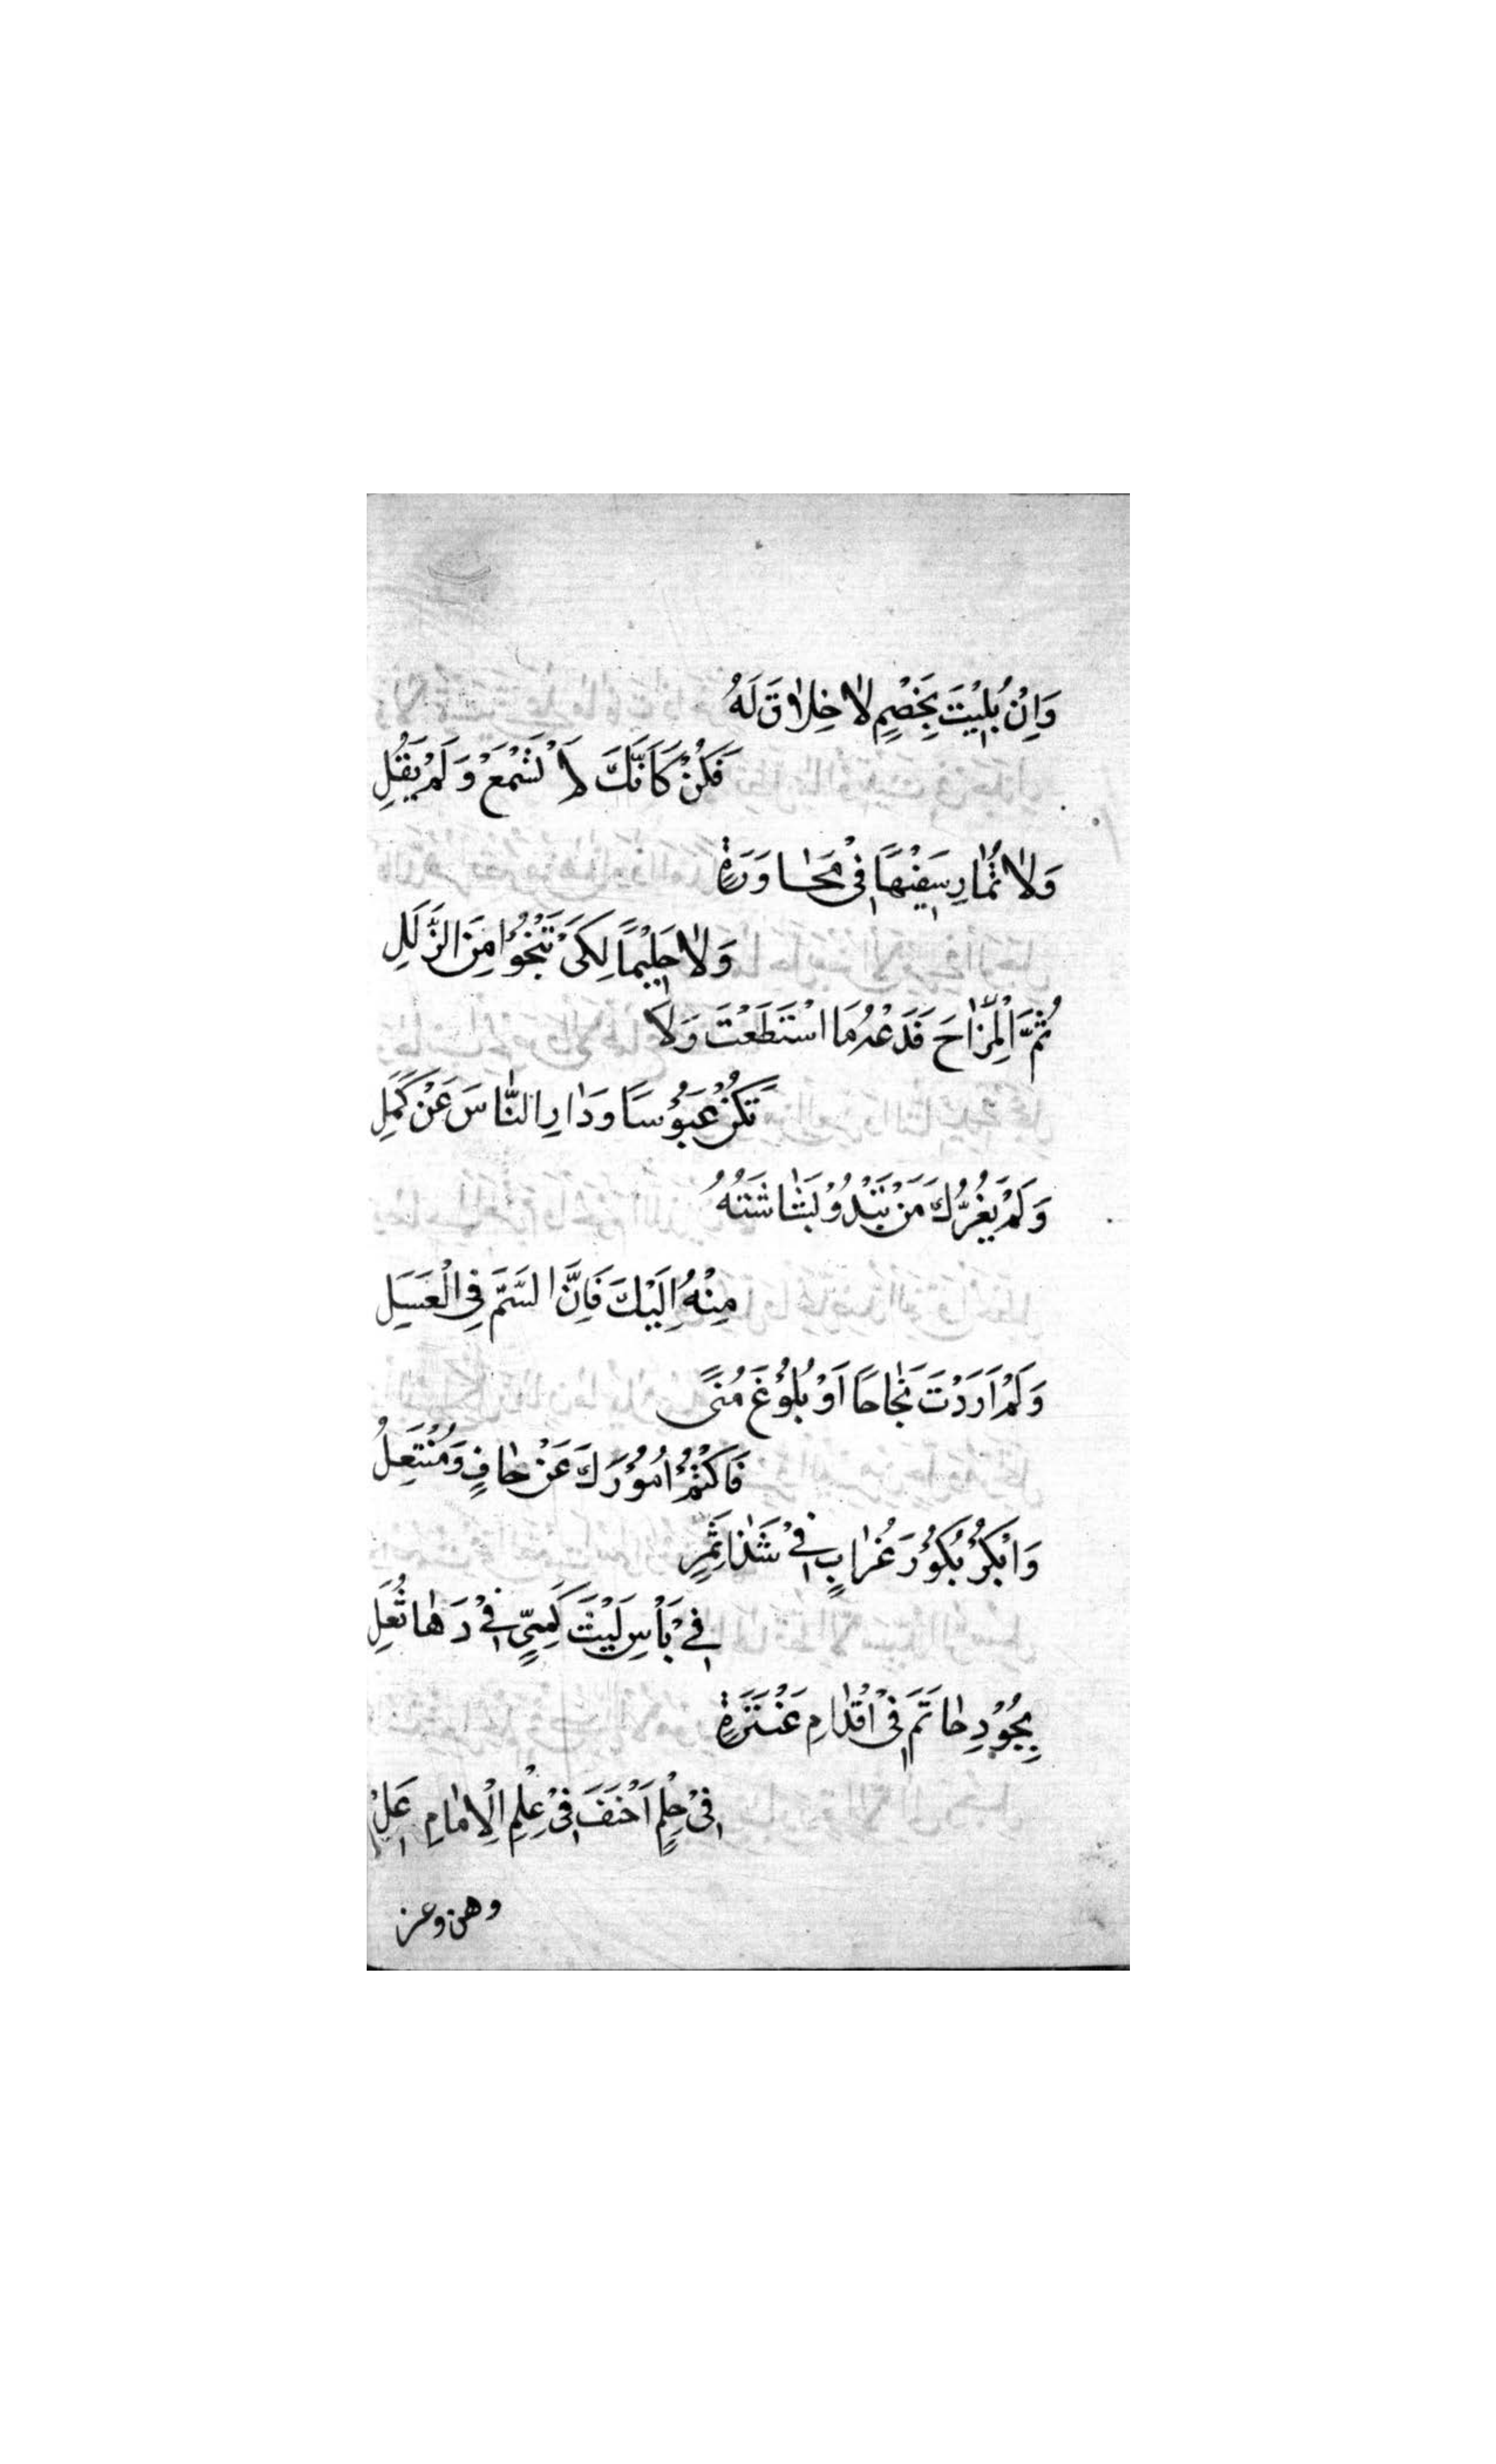 وَاِنْ بُلِيْتَ بِخَصْمٍ لَا خِلَاقَ لَهُ
فَكُنْ كَاَنَّكَ لَا تَسْمَعْ وَلَمْ يَقُلِ
وَلَا تُمَارِ سَفِيْهًا فِيْ مُحَاوَرَةٍ
وَلَا حَلِيْمًا لِكَيْ تَنْجُوْا مِنَ الزَّلَلِ
ثُمَّ الْمِزَاحَ فَدَعْهُ مَا اسْتَطَعْتَ وَلَا
تَكُنْ عَبُوْسًا وَدَارِ النَّاسَ عَنْ كَمَلِ
وَلَمْ يَغُرُّكَ مَنْ تَبْدُوْ بَشَاشَتُهُ
مِنْهُ اِلَيْكَ فَاِنَّ السَّمَّ فِى الْعَسَلِ
وَلَمْ اَرَدْتَ نَجَاحًا اَوْ بُلُوْغَ مُنًى
فَاكْتُمْ اُمُوْرَكَ عَنْ حَافٍ وَمُنْتَعِلُ
وَابْكُرْ بُكُوْرَ غُرَابٍ فِيْ شَذَا نَمِرٍ
فِيْ بَأْسِ لَيْتَ كَمِيٍّ فِيْ دَهَا ثُعَلِ
بِجُوْدِ حَاتَمَ فِيْ اَقْدَامِ عَنْتَرَةٍ
فِيْ حِلْمِ اَحْنَفَ فِيْ عِلْمِ الْاِمَامِ عَلِيْ
وهن وعز